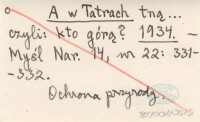 A w Tatrach tną...
czyli: kto górą? 1934. –
Myśl Nar. 14, nr 22: 331-
-332.
Ochrona przyrody.